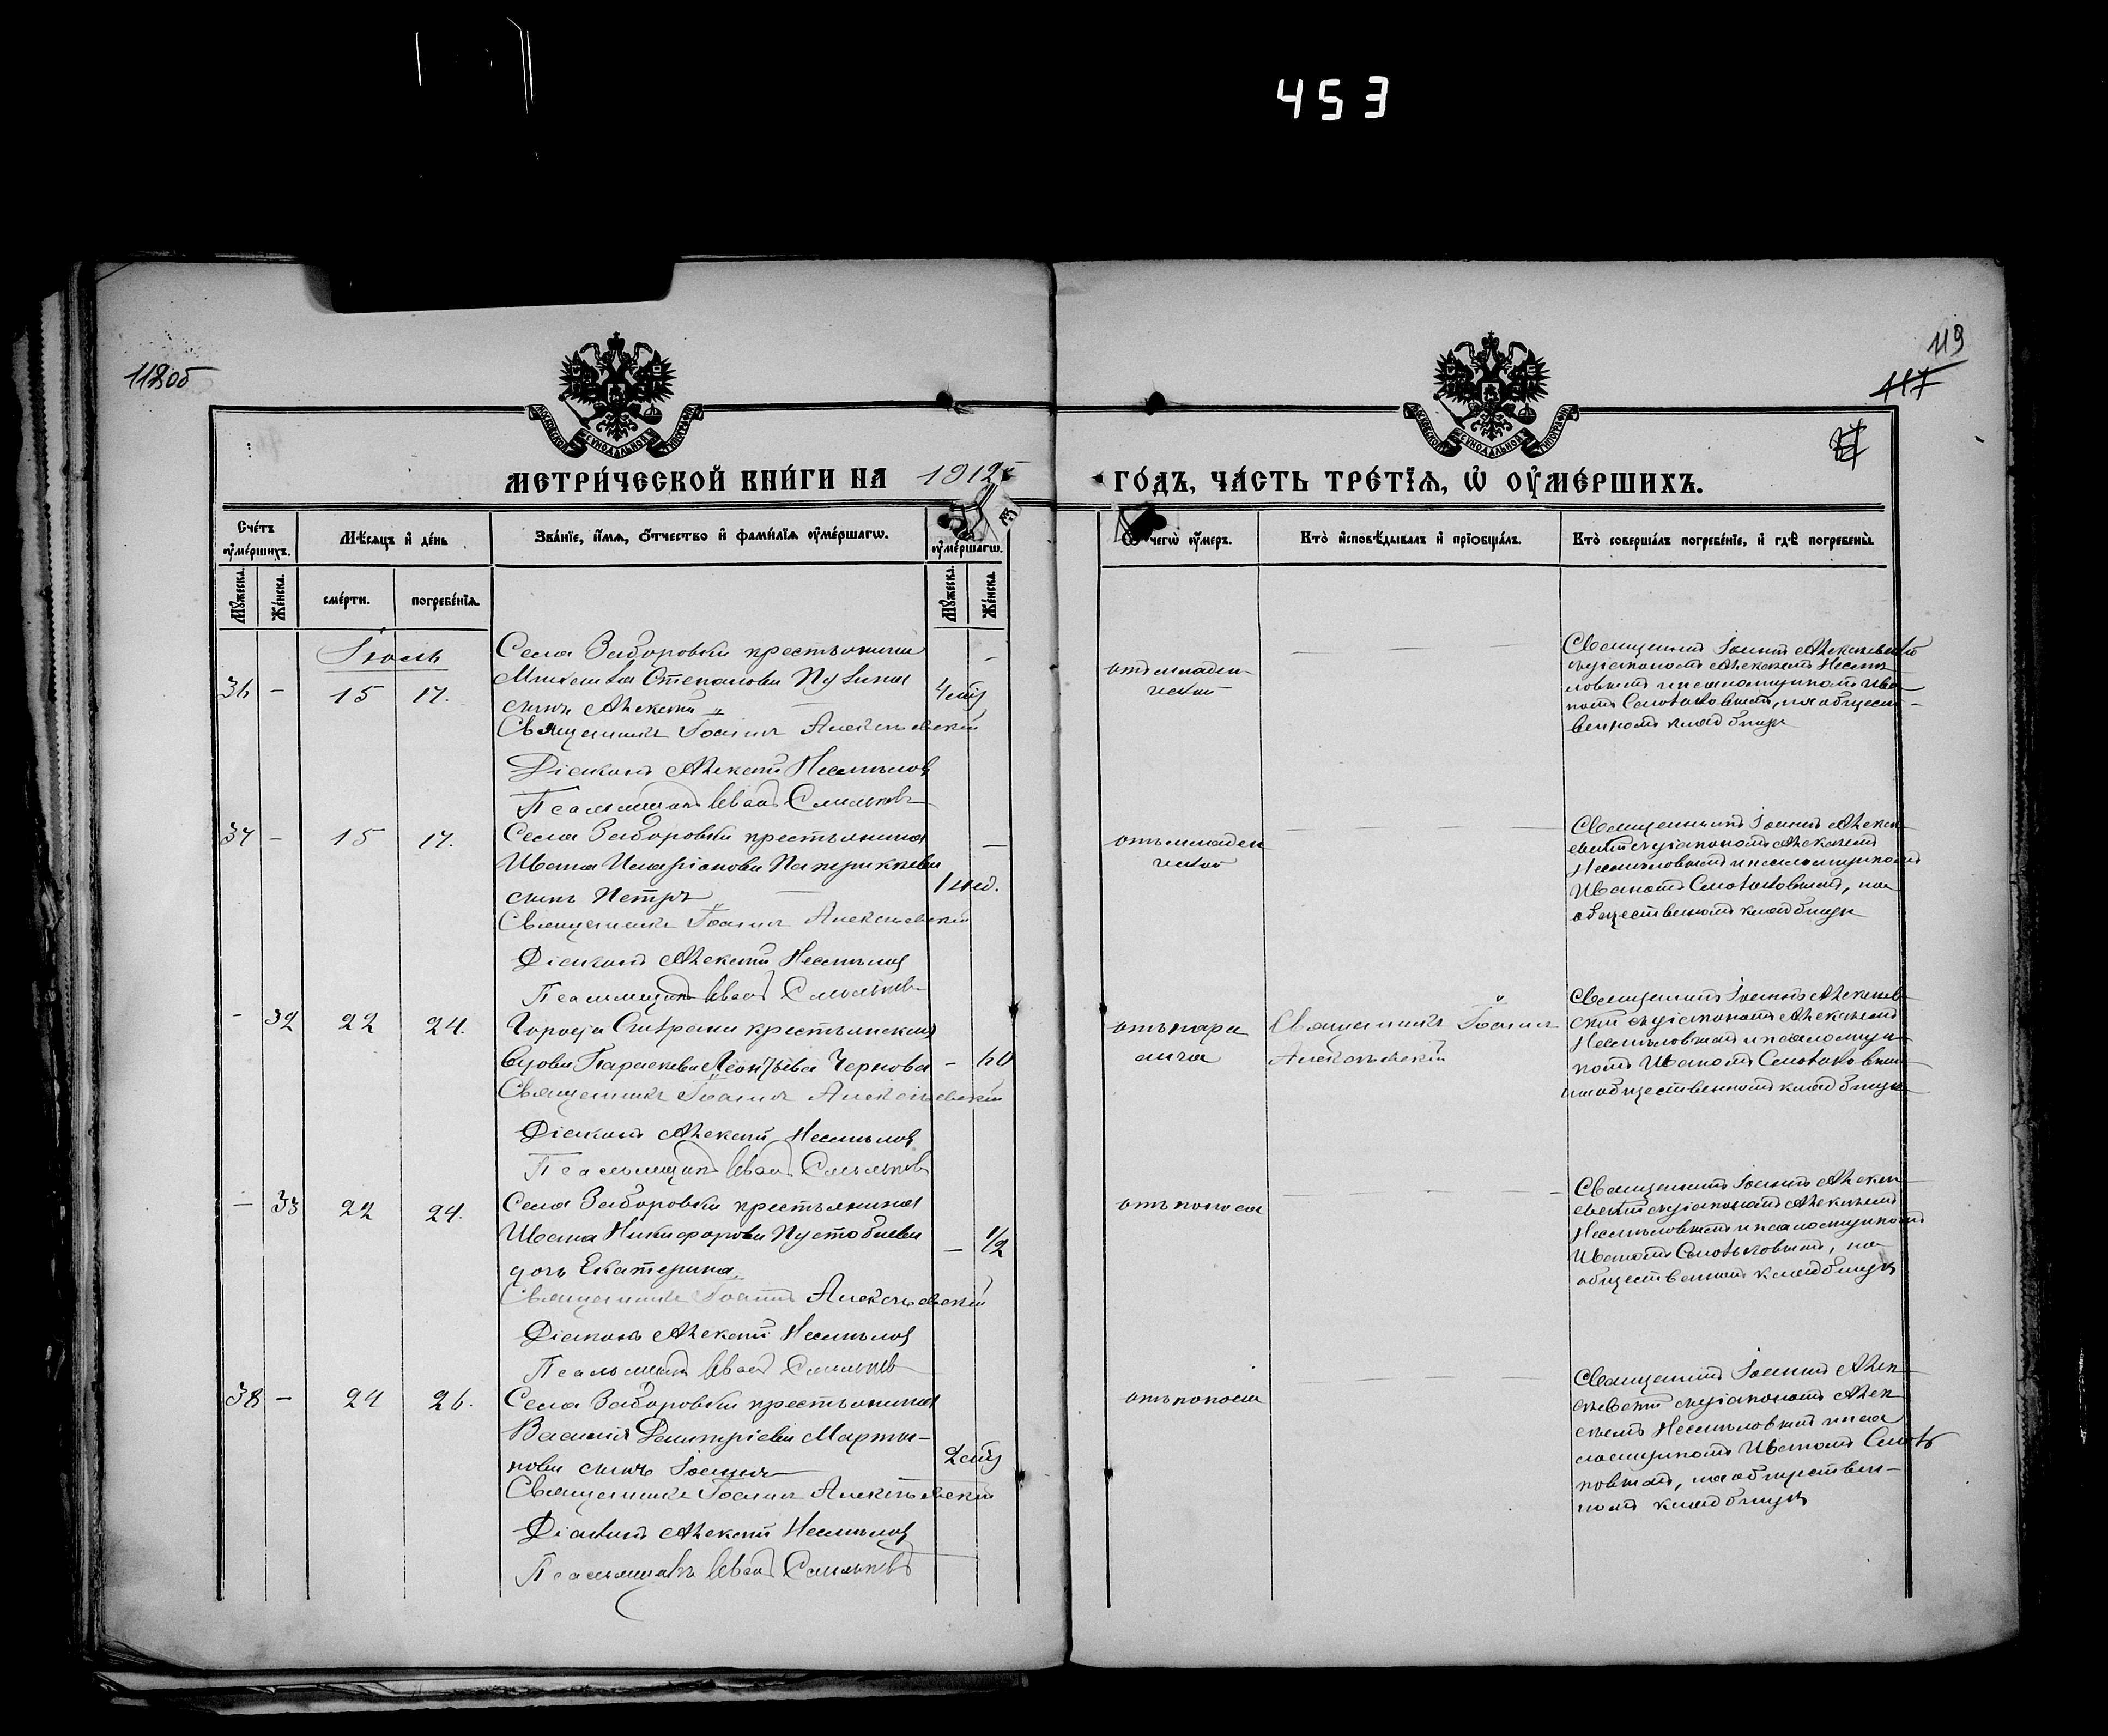 453
118об
119
117
МОСКОВСКОЙ СѴНОДАЛЬНОЙ ТИПОГРАФІИ
МОСКОВСКОЙ СѴНОДАЛЬНОЙ ТИПОГРАФІИ
МЕТРИ́ЧЕСКОЙ КНИ́ГИ НА 1912 ГО́ДЪ, ЧА́СТЬ ТРЕ́ТЇѦ, Ѡ҆ ОУ҆МЕ́РШИХЪ.
Сче́тъ оу҆ме́ршихъ.
Мѣ́сѧцъ и҆ де́нь
Зва́нїе, и҆́мѧ, ѻ҆́тчество и҆ фами́лїѧ оу҆ме́ршагѡ.
оу҆ме́ршагѡ.
Ѿ чегѡ̀ оу҆́меръ.
Кто̀ и҆сповѣ́дывалъ и҆ прїѡбща́лъ.
Кто̀ соверша́лъ погребе́нїе, и҆ гдѣ̀ погребены̀.
Мꙋ́жеска.
Же́нска.
сме́рти.
погребе́нїѧ.
Мꙋ́жеска.
Же́нска.
Іюль
36 - 15 17.
Села Заборовки крестьянина
Михаила Степанова
сынъ Алексѣй
Священникъ Іоаннъ Алексѣевскій
Діаконъ Алексѣй Несмѣловъ
Псаломщикъ Иванъ Смольковъ
-
отъ младен-
ческой
Священникъ Іоаннъ Алексѣевскій
съ діакономъ Алексѣемъ Несмѣ-
ловымъ и псаломщикомъ Ива-
номъ Смольковымъ, на общест-
венномъ кладбищѣ
37 - 15 17.
Села Заборовки крестьянина
Ивана Иларіонова Патрикѣева
сынъ Петръ
Священникъ Іоаннъ Алексѣевскій
Діаконъ Алексѣй Несмѣловъ
Псаломщикъ Иванъ Смольковъ
-
1 нед.
отъ младен
ческой
Священникъ Іоаннъ Алексѣ-
евскій съ діакономъ Алексѣемъ
Несмѣловымъ и псаломщикомъ
Иваномъ Смольковымъ, на
общественномъ кладбищѣ
- 32 22 24.
Города Сызрани крестьянская
вдова Параскева Леонтьева Чернова
Священникъ Іоаннъ Алексѣевскій
Діаконъ Алексѣй Несмѣловъ
Псаломщикъ Иванъ Смольковъ
-
отъ пара
лича
Священникъ Іоаннъ
Алексѣевскій
Священникъ Іоаннъ Алексѣев-
скій съ діакономъ Алексѣемъ
Несмѣловымъ и псаломщи-
комъ Иваномъ Смольковымъ
на общественномъ кладбищѣ
- 33 22 24.
Села Заборовки крестьянина
Ивана Никифорова Пустобаева
дочь Екатерина
Священникъ Іоаннъ Алексѣевскій
Діаконъ Алексѣй Несмѣловъ
Псаломщикъ Иванъ Смольковъ
- 1/2
отъ поноса
Священникъ Іоаннъ Алексѣ-
евскій съ діакономъ Алексѣемъ
Несмѣловымъ и псаломщикомъ
Иваномъ Смольковымъ, на
общественномъ кладбищѣ
38 - 24 26.
Села Заборовки крестьянина
Василія Димитріева Марты-
нова сынъ Іоаннъ
Священникъ Іоаннъ Алексѣевскій
Діаконъ Алексѣй Несмѣловъ
Псаломщикъ Иванъ Смольковъ
отъ поноса
Священникъ Іоаннъ Алек-
сѣевскій съ діакономъ Алек-
сѣемъ Несмѣловымъ и пса
ломщикомъ Иваномъ Смоль
ковымъ, на обществен-
номъ кладбищѣ